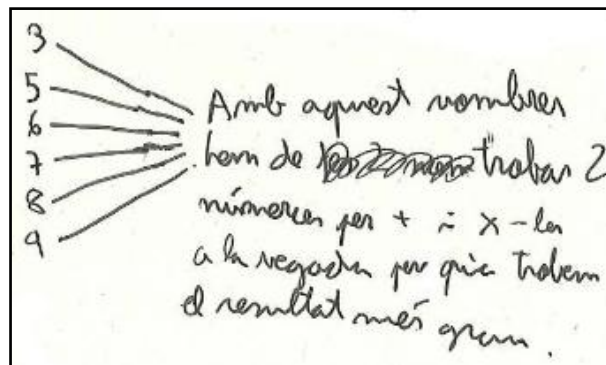 3
5
6
7
8
9
Amb aquest nombres
hem de trobar 2
números per + i x-los
a la vegada per què trobem
el resultat més gran.